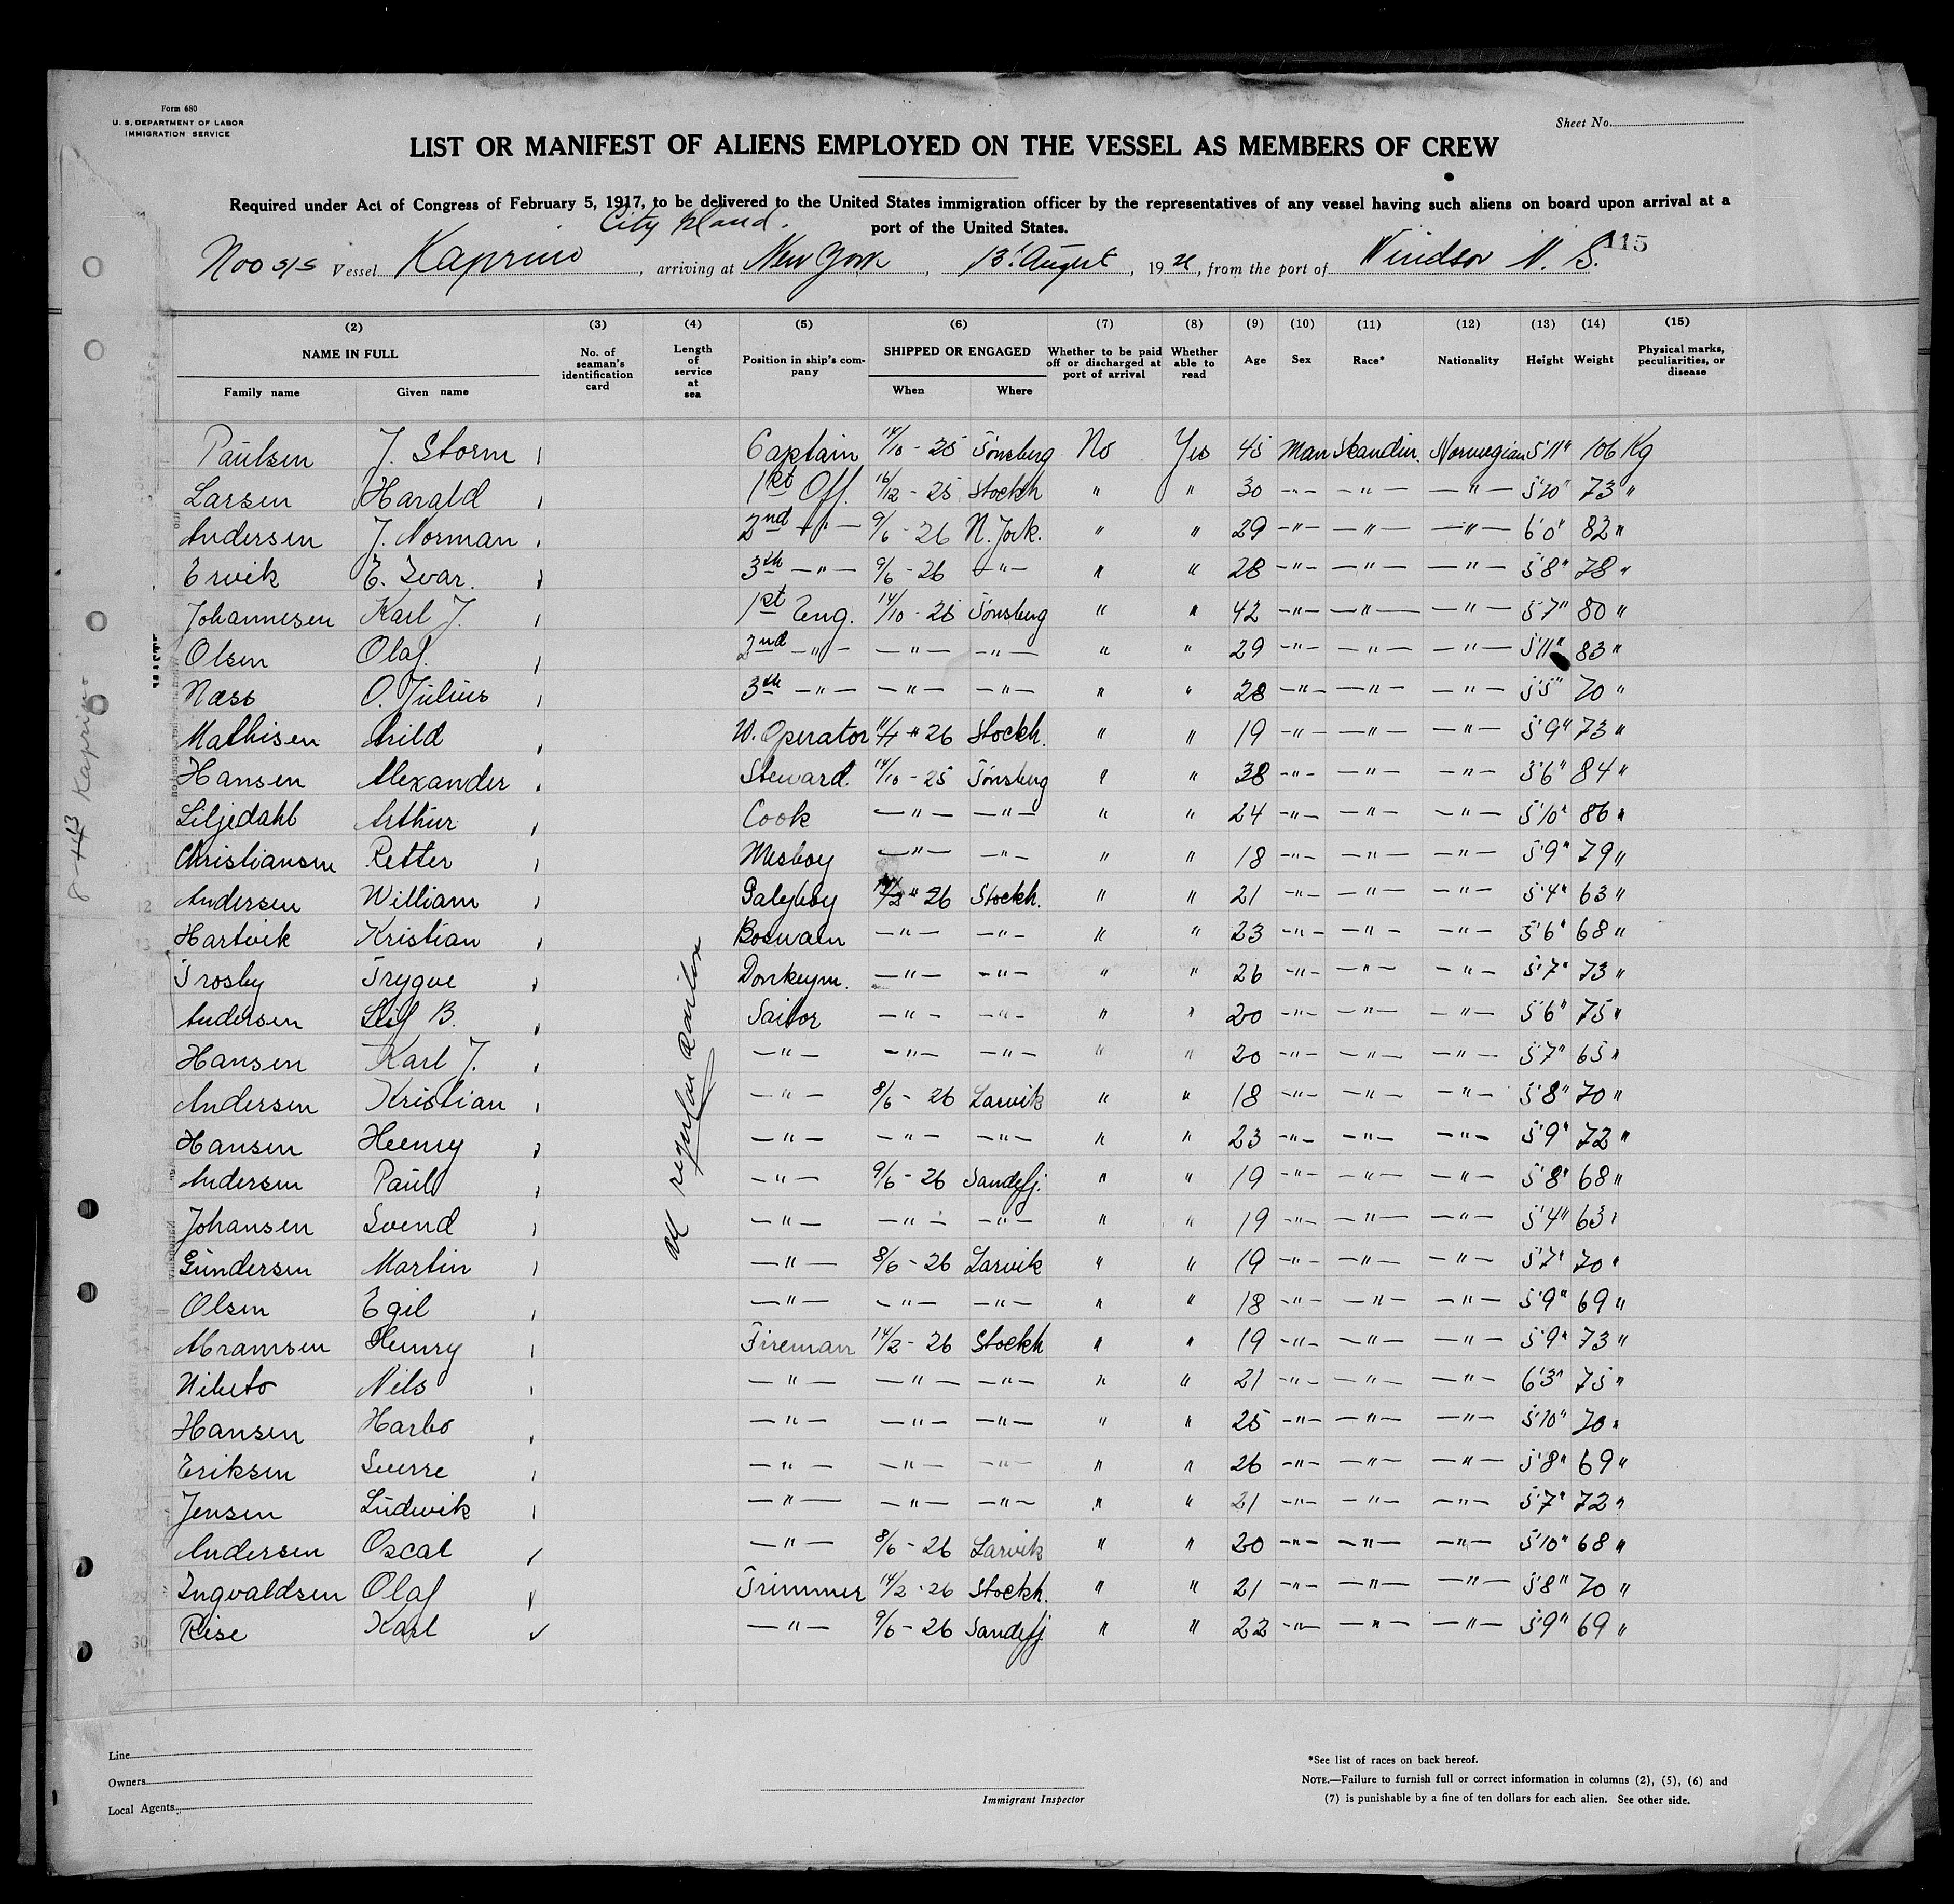 Form 680
U. S. DEPARTMENT OF LABOR
IMMIGRATION SERVICE
Sheet No.
LIST OR MANIFEST OF ALIENS EMPLOYED ON THE VESSEL AS MEMBERS OF CREW
Required under Act of Congress of February 5, 1917, to be delivered to the United States immigration officer by the representatives of any vessel having such aliens on board upon arrival at a
port of the United States.
City Island.
115
S/S Vessel Kaprino, arriving at New York, 13' August, 19 26, from the port of Windsor N. S.
(2) (3) (4) (5) (6) (7) (8) (9) (10) (11) (12) (13) (14) (15)
NAME IN FULL No. of seaman's identification card Length of service at sea Position in ship's company SHIPPED OR ENGAGED Whether to be paid off or discharged at port of arrival Whether able to read Age Sex Race* Nationality Height Weight Physical marks, peculiarities, or disease
Family name Given name When Where
Paulsen J. Storm Captain 14/10 - 25 Tönsberg No Yes 45 Man Skandin. Norwegian 5'11" 106 Kg
Larsen Harald 1st Off. 16/12 - 25 Stockh " " 30 -"- -"- -"- 5'10" 73 "
Andersen J. Norman 2nd -"- 9/6 - 26 N. York. " " 29 -"- -"- -"- 6'0" 82 "
Ervik E. Ivar. 3th -"- 9/6 - 26 -"- " " 28 -"- -"- -"- 5'8" 78 "
Johannesen Karl J. 1st Eng. 14/10 - 25 Tönsberg " " 42 -"- -"- -"- 5'7" 80 "
Olsen Olaf. 2nd -"- -"- -"- " " 29 -"- -"- -"- 5'11" 83 "
Næss O. Julius 3th -"- -"- -"- " " 28 -"- -"- -"- 5'5" 70 "
Mathisen Arild W. Operator 26 Stockh. " " 19 -"- -"- -"- 5'9" 73 "
Hansen Alexander Steward. 14/10 - 25 Tönsberg " " 38 -"- -"- -"- 5'6" 84 "
Liljedahl Arthur Cook -"- -"- " " 24 -"- -"- -"- 5'10" 86 "
Christiansen Retter Mesboy -"- -"- " " 18 -"- -"- -"- 5'9" 79 "
12 Andersen William Galeyboy 14/2 " 26 Stockh. " " 21 -"- -"- -"- 5'4" 63 "
13 Hartvik Kristian Boswain -"- -"- " " 23 -"- -"- -"- 5'6" 68 "
Trosby Trygve Donkeym. -"- -"- " " 26 -"- -"- -"- 5'7" 73 "
Andersen Leif B. Sailor -"- -"- " " 20 -"- -"- -"- 5'6" 75 "
Hansen Karl J. -"- -"- -"- " " 20 -"- -"- -"- 5'7" 65 "
Andersen Kristian -"- 8/6 - 26 Larvik " " 18 -"- -"- -"- 5'8" 70 "
Hansen Henry -"- -"- -"- " " 23 -"- -"- -"- 5'9" 72 "
Andersen Paul -"- 9/6 - 26 Sandefj. " " 19 -"- -"- -"- 5'8" 68 "
Johansen Svend -"- -"- -"- " " 19 -"- -"- -"- 5'4" 63 "
Gundersen Martin -"- 8/6 - 26 Larvik " " 19 -"- -"- -"- 5'7" 70 "
Olsen Egil -"- -"- -"- " " 18 -"- -"- -"- 5'9" 69 "
Abramsen Henry Fireman 14/2 - 26 Stockh " " 19 -"- -"- -"- 5'9" 73 "
Nibeto Nils -"- -"- -"- " " 21 -"- -"- -"- 6'3" 75 "
Hansen Harbo -"- -"- -"- " " 25 -"- -"- -"- 5'10" 70 "
Eriksen Sverre -"- -"- -"- " " 26 -"- -"- -"- 5'8" 69 "
Jensen Ludwik -"- -"- -"- " " 21 -"- -"- -"- 5'7" 72 "
28 Andersen Oscal -"- 8/6 - 26 Larvik " " 20 -"- -"- -"- 5'10" 68 "
29 Ingvaldsen Olaf Trimmer 14/2 - 26 Stockh. " " 21 -"- -"- -"- 5'8" 70 "
30 Reise Karl -"- 9/6 - 26 Sandefj. " " 22 -"- -"- -"- 5'9" 69 "
all regular sailors
Kaprino
Line
Owners
Local Agents
Immigrant Inspector
*See list of races on back hereof.
NOTE.—Failure to furnish full or correct information in columns (2), (5), (6) and
(7) is punishable by a fine of ten dollars for each alien. See other side.